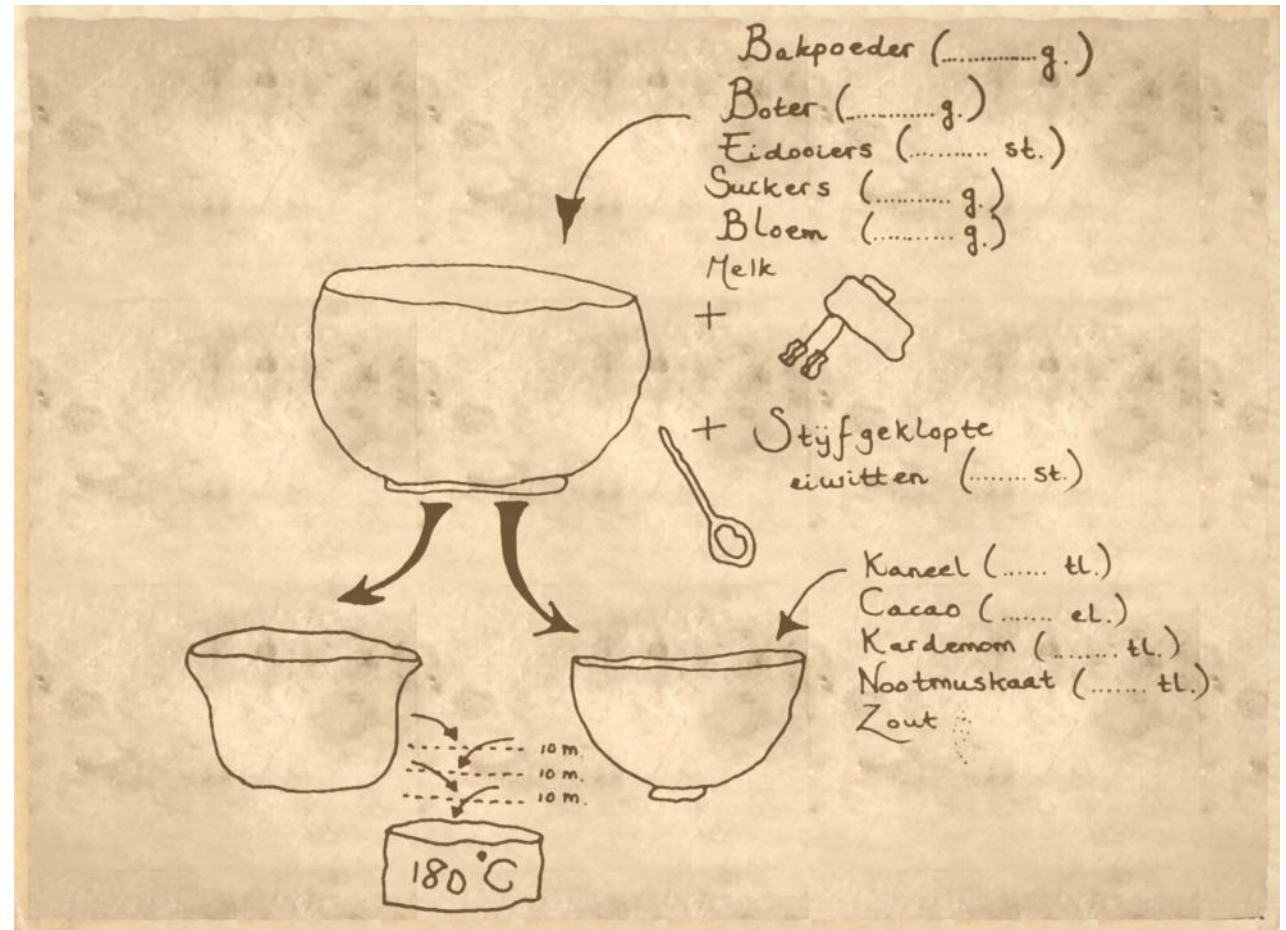 Bakpoeder (............. g.)
Boter (............ g.)
Eidooiers (.......... st.)
Suckers (.......... g.)
Bloem (........... g.)
Melk
+
+ Stijfgeklopte
eiwitten (....... st.)
Kaneel (...... tl.)
Cacao (....... el.)
Kardemom (........ tl.)
Nootmuskaat (....... tl.)
Zout
10 m.
10 m.
10 m.
180°C